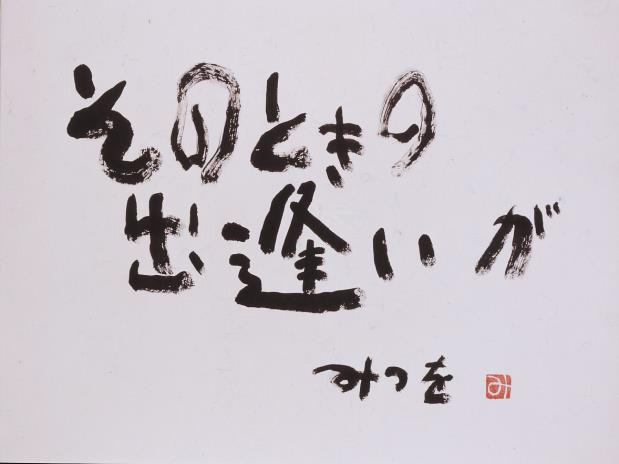 そのときの
出逢いが
みつを
み